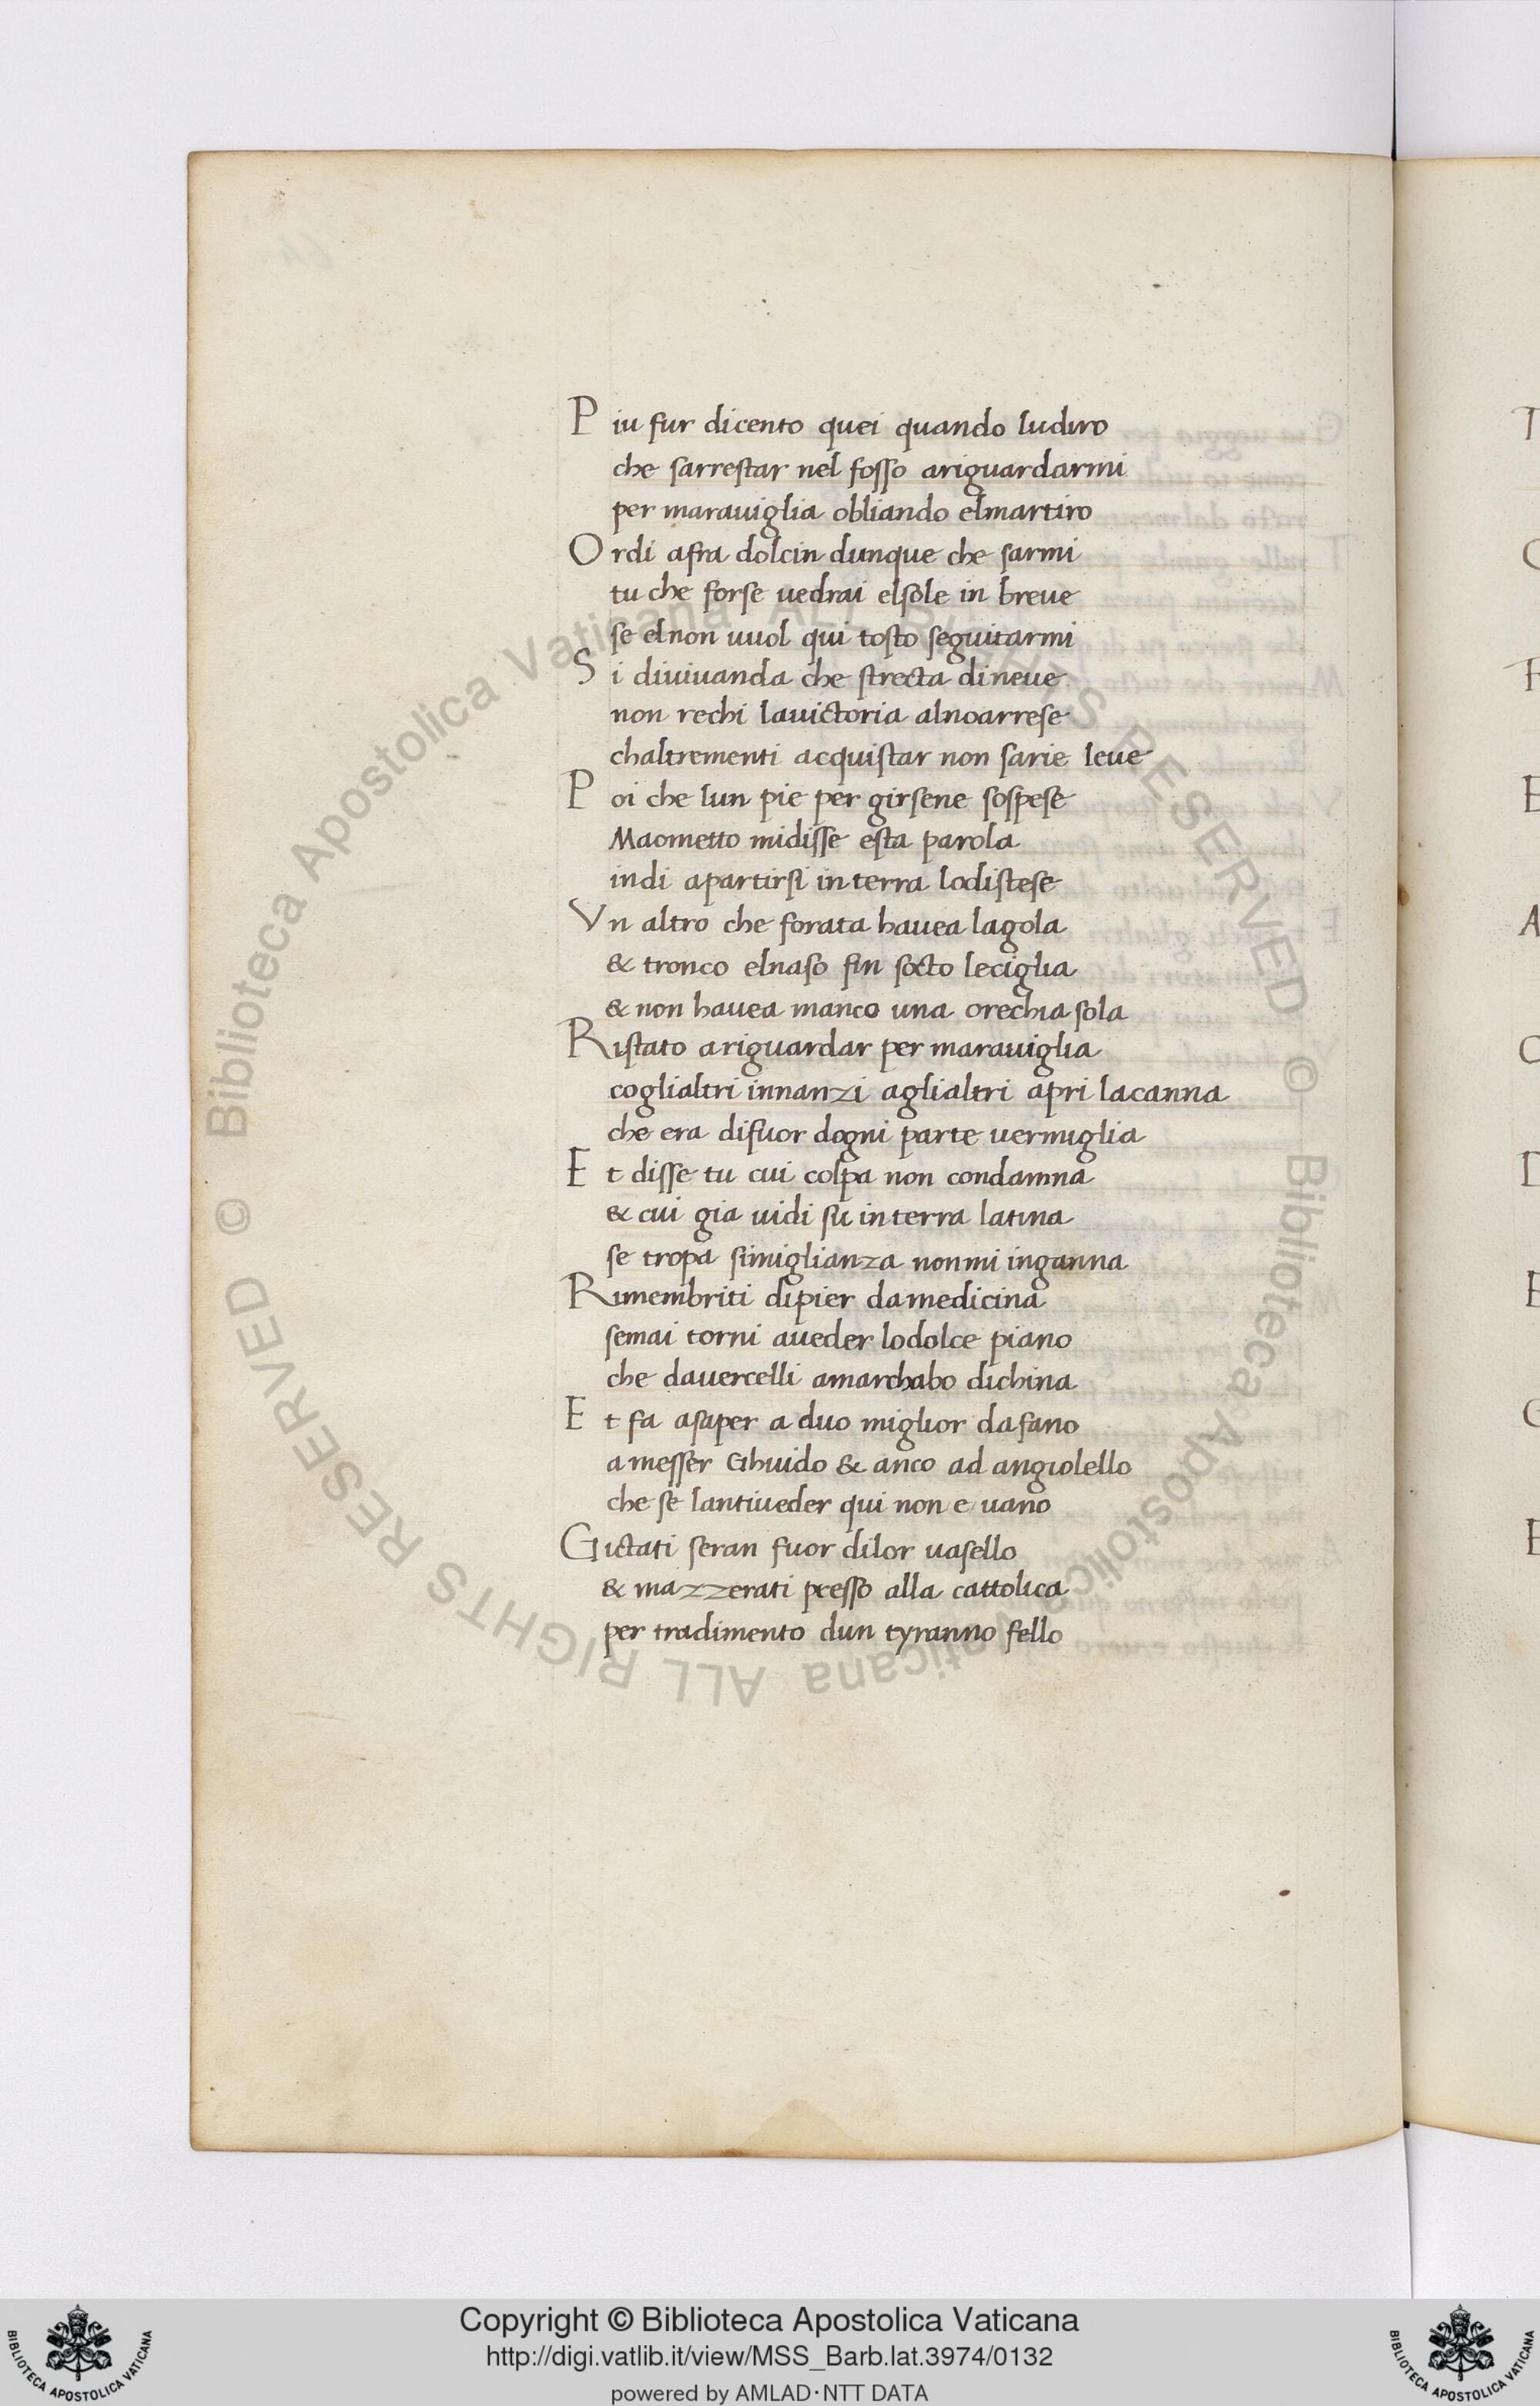 Piu fur dicento quei quando ludiro
che sarrestar nel fosso ariguardarmi
per marauiglia obliando elmartiro
Ordi afra dolcin dunque che sarmi
tu che forse uedrai elsole in breue
se elnon uuol qui tosto seguitarmi
Si diuiuanda che strecta dineue
non rechi lauictoria alnoarrese
chaltrementi acquistar non sarie leue
Poi che lun pie per girsene sospese
Maometto midisse esta parola
indi apartirsi in terra lodistese
Vn altro che forata hauea lagola
& tronco elnaso fin socto leciglia
& non hauea manco una orechia sola
Ristato ariguardar per marauiglia
coglialtri innanzi aglialtri apri lacanna
che era difuor dogni parte uermiglia
Et disse tu cui colpa non condamna
& cui gia uidi su in terra latina
se tropa simiglianza nonmi inganna
Rimembriti dipier damedicina
semai torni aueder lodolce piano
che dauercelli amarchabo dichina
Et fa asaper a duo miglior dafano
amesser Ghuido & anco ad angiolello
che se lantiueder qui non e uano
Gictati seran fuor dilor uasello
& mazzerati presso alla cattolica
per tradimento dun tyranno fello
© Biblioteca Apostolica Vaticana ALL RIGHTS RESERVED © Biblioteca Apostolica Vaticana ALL RIGHTS RESERVED
Copyright © Biblioteca Apostolica Vaticana
http://digi.vatlib.it/view/MSS_Barb.lat.3974/0132
powered by AMLAD·NTT DATA
BIBLIOTECA APOSTOLICA VATICANA
BIBLIOTECA APOSTOLICA VATICANA